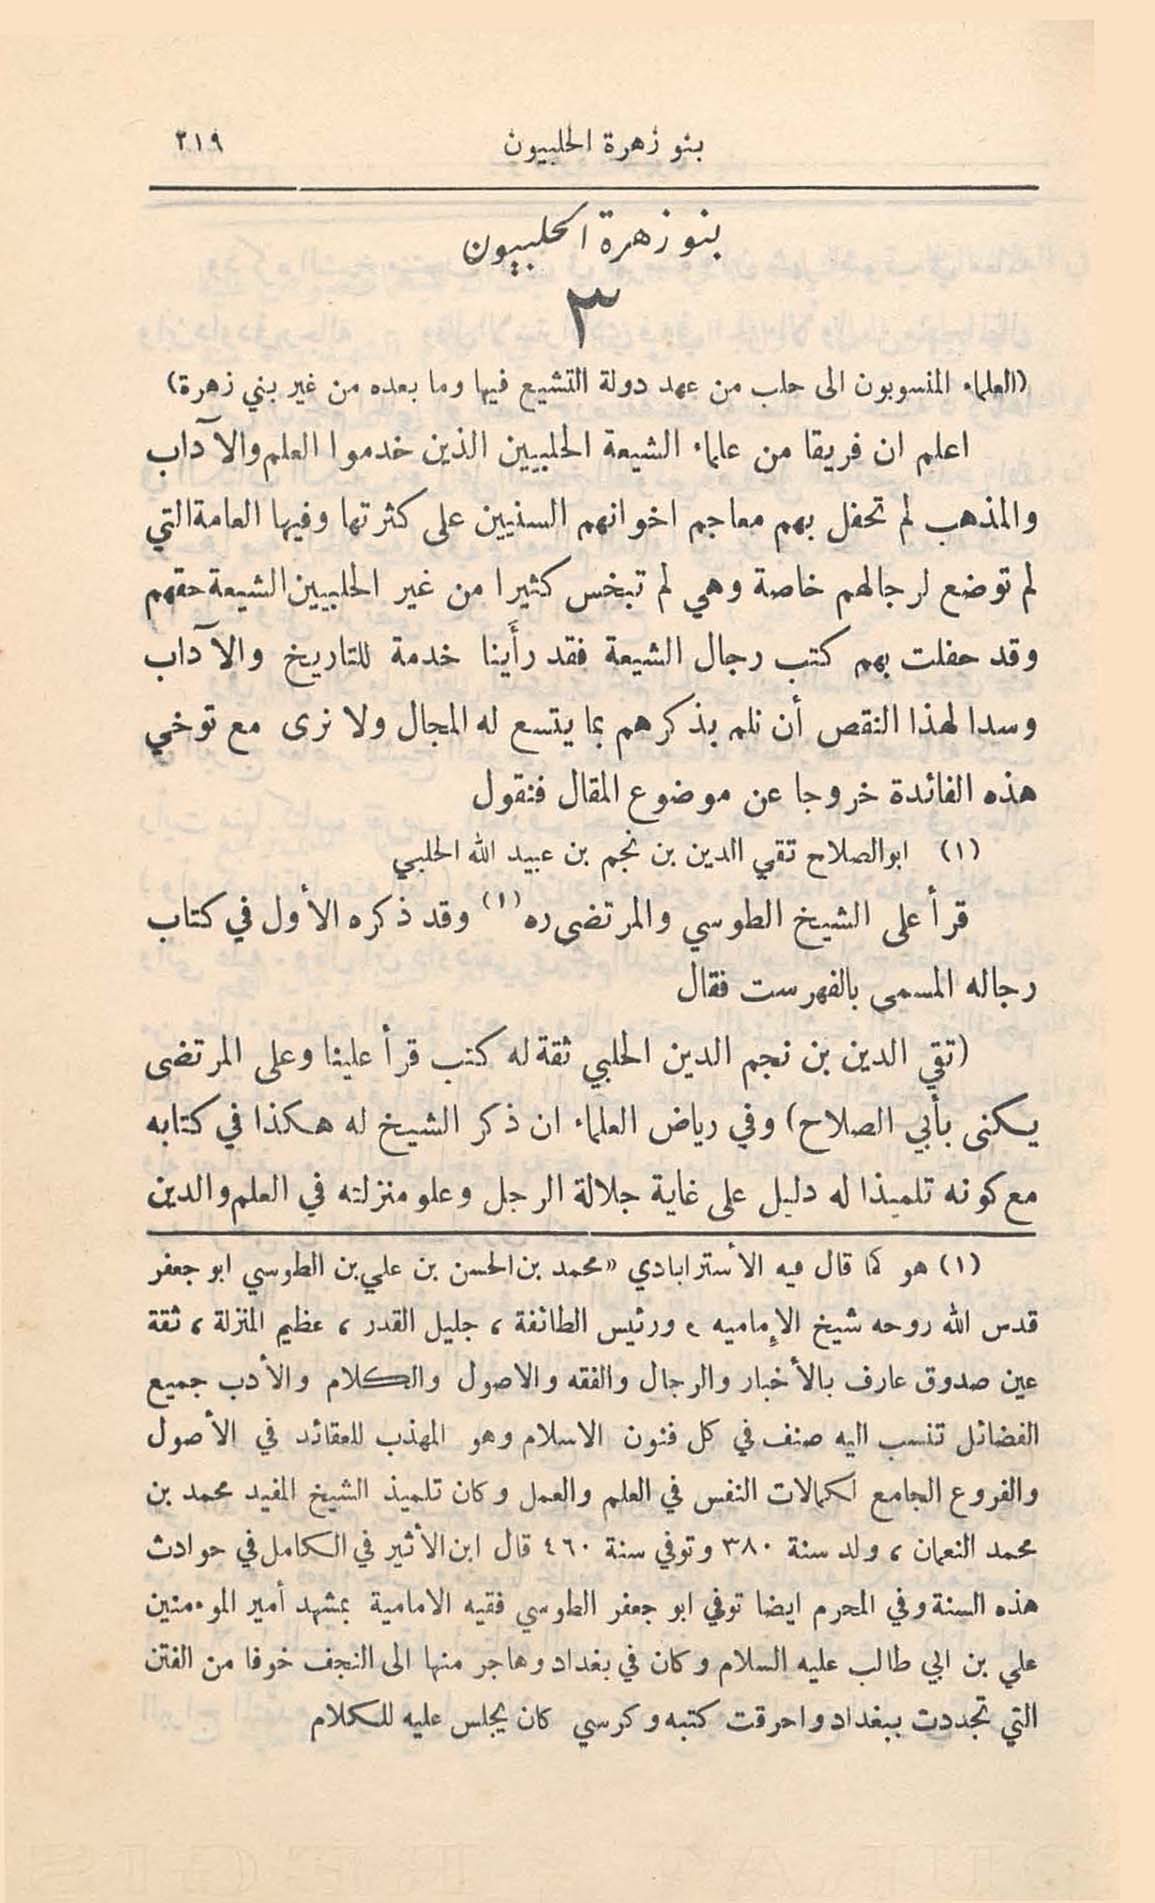 بنو زهرة الحلبيون ٢١٩
بنو زهرة الحلبيون
٣
(العلماء المنسوبون الى حلب من عهد دولة التشيع فيها وما بعده من غير بني زهرة)
اعلم ان فريقا من علماء الشيعة الحلبيين الذين خدموا العلم والآداب
والمذهب لم تحفل بهم معاجم اخوانهم السنيين على كثرتها وفيها العامة التي
لم توضع لرجالهم خاصة وهي لم تبخس كثيرا من غير الحلبيين الشيعة حقهم
وقد حفلت بهم كتب رجال الشيعة فقد رأينا خدمة للتاريخ والآداب
وسدا لهذا النقص أن نلم بذكرهم بما يتسع له المجال ولا نرى مع توخي
هذه الفائدة خروجا عن موضوع المقال فنقول
(١) ابوالصلاح تقي الدين بن نجم بن عبيد الله الحلبي
قرأ على الشيخ الطوسي والمرتضى ره (١) وقد ذكره الأول في كتاب
رجاله المسمى بالفهرست فقال
(تقي الدين بن نجم الدين الحلبي ثقة له كتب قرأ علينا وعلى المرتضى
يكنى بأبي الصلاح) وفي رياض العلماء ان ذكر الشيخ له هكذا في كتابه
مع كونه تلميذا له دليل على غاية جلالة الرجل وعلو منزلته في العلم والدين
(١) هو كما قال فيه الأسترابادي «محمد بن الحسن بن علي بن الطوسي ابو جعفر
قدس الله روحه شيخ الإماميه ، ورئيس الطائفة ، جليل القدر ، عظيم المنزلة ، ثقة
عين صدوق عارف بالأخبار والرجال والفقه والاصول والكلام والأدب جميع
الفضائل تنسب اليه صنف في كل فنون الاسلام وهو المهذب للعقائد في الأصول
والفروع الجامع لكمالات النفس في العلم والعمل وكان تلميذ الشيخ المفيد محمد بن
محمد النعمان ، ولد سنة ٣٨٠ وتوفي سنة ٤٦٠ قال ابن الأثير في الكامل في حوادث
هذه السنة وفي المحرم ايضا توفي ابو جعفر الطوسي فقيه الامامية بمشهد أمير الموءمنين
علي بن ابي طالب عليه السلام وكان في بغداد وهاجر منها الى النجف خوفا من الفتن
التي تجددت ببغداد واحرقت كتبه وكرسي كان يجلس عليه للكلام